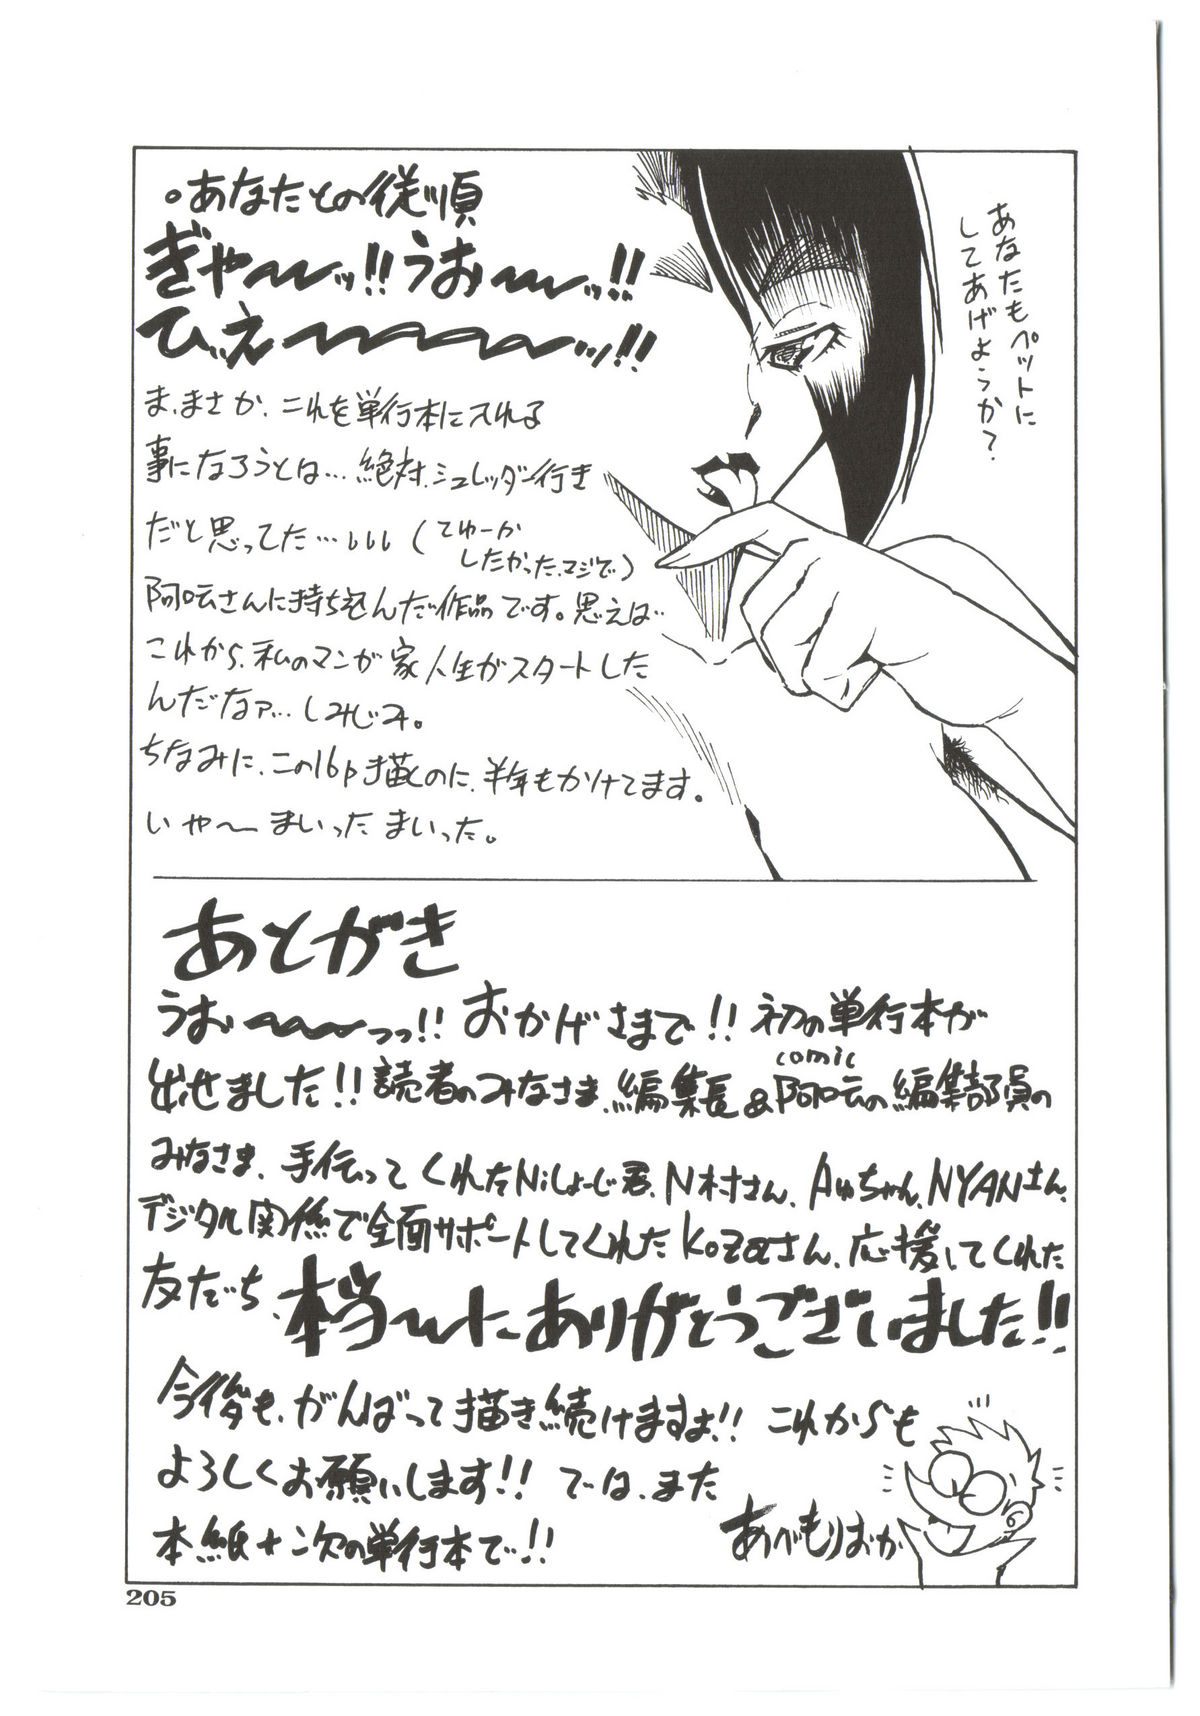 。あなたとの従順
ぎゃ〜〜ッ!!うお〜〜ッ!!
ひぃえ〜〜〜〜ッ!!
ま、まさか、これを単行本に入れる
事になろうとは…絶対、シュレッダー行き
だと思ってた…(てゅーか
したかった、マジで)
阿吽さんに持ち込んだ作品です。思えば
これから、私のマンガ家人生がスタートした
んだなァ…しみじみ。
ちなみに、この16p描くのに、半年もかけてます。
いや〜まいったまいった。
あなたもペットに
してあげようか?
あとがき
うお〜〜〜っっ!!おかげさまで!!初の単行本が
出せました!!読者のみなさま、編集長&comic阿吽の編集部員の
みなさま、手伝ってくれたNiしょーじ君、N村さん、Aゅちゃん、NYANさん、
デジタル関係で全面サポートしてくれたKOZaさん、応援してくれた
友だち、本当〜にありがとうございました!!
今後も、がんばって描き続けますよ!!これからも
よろしくお願いします!!では、また
本紙+次の単行本で!!
あべもりおか
205